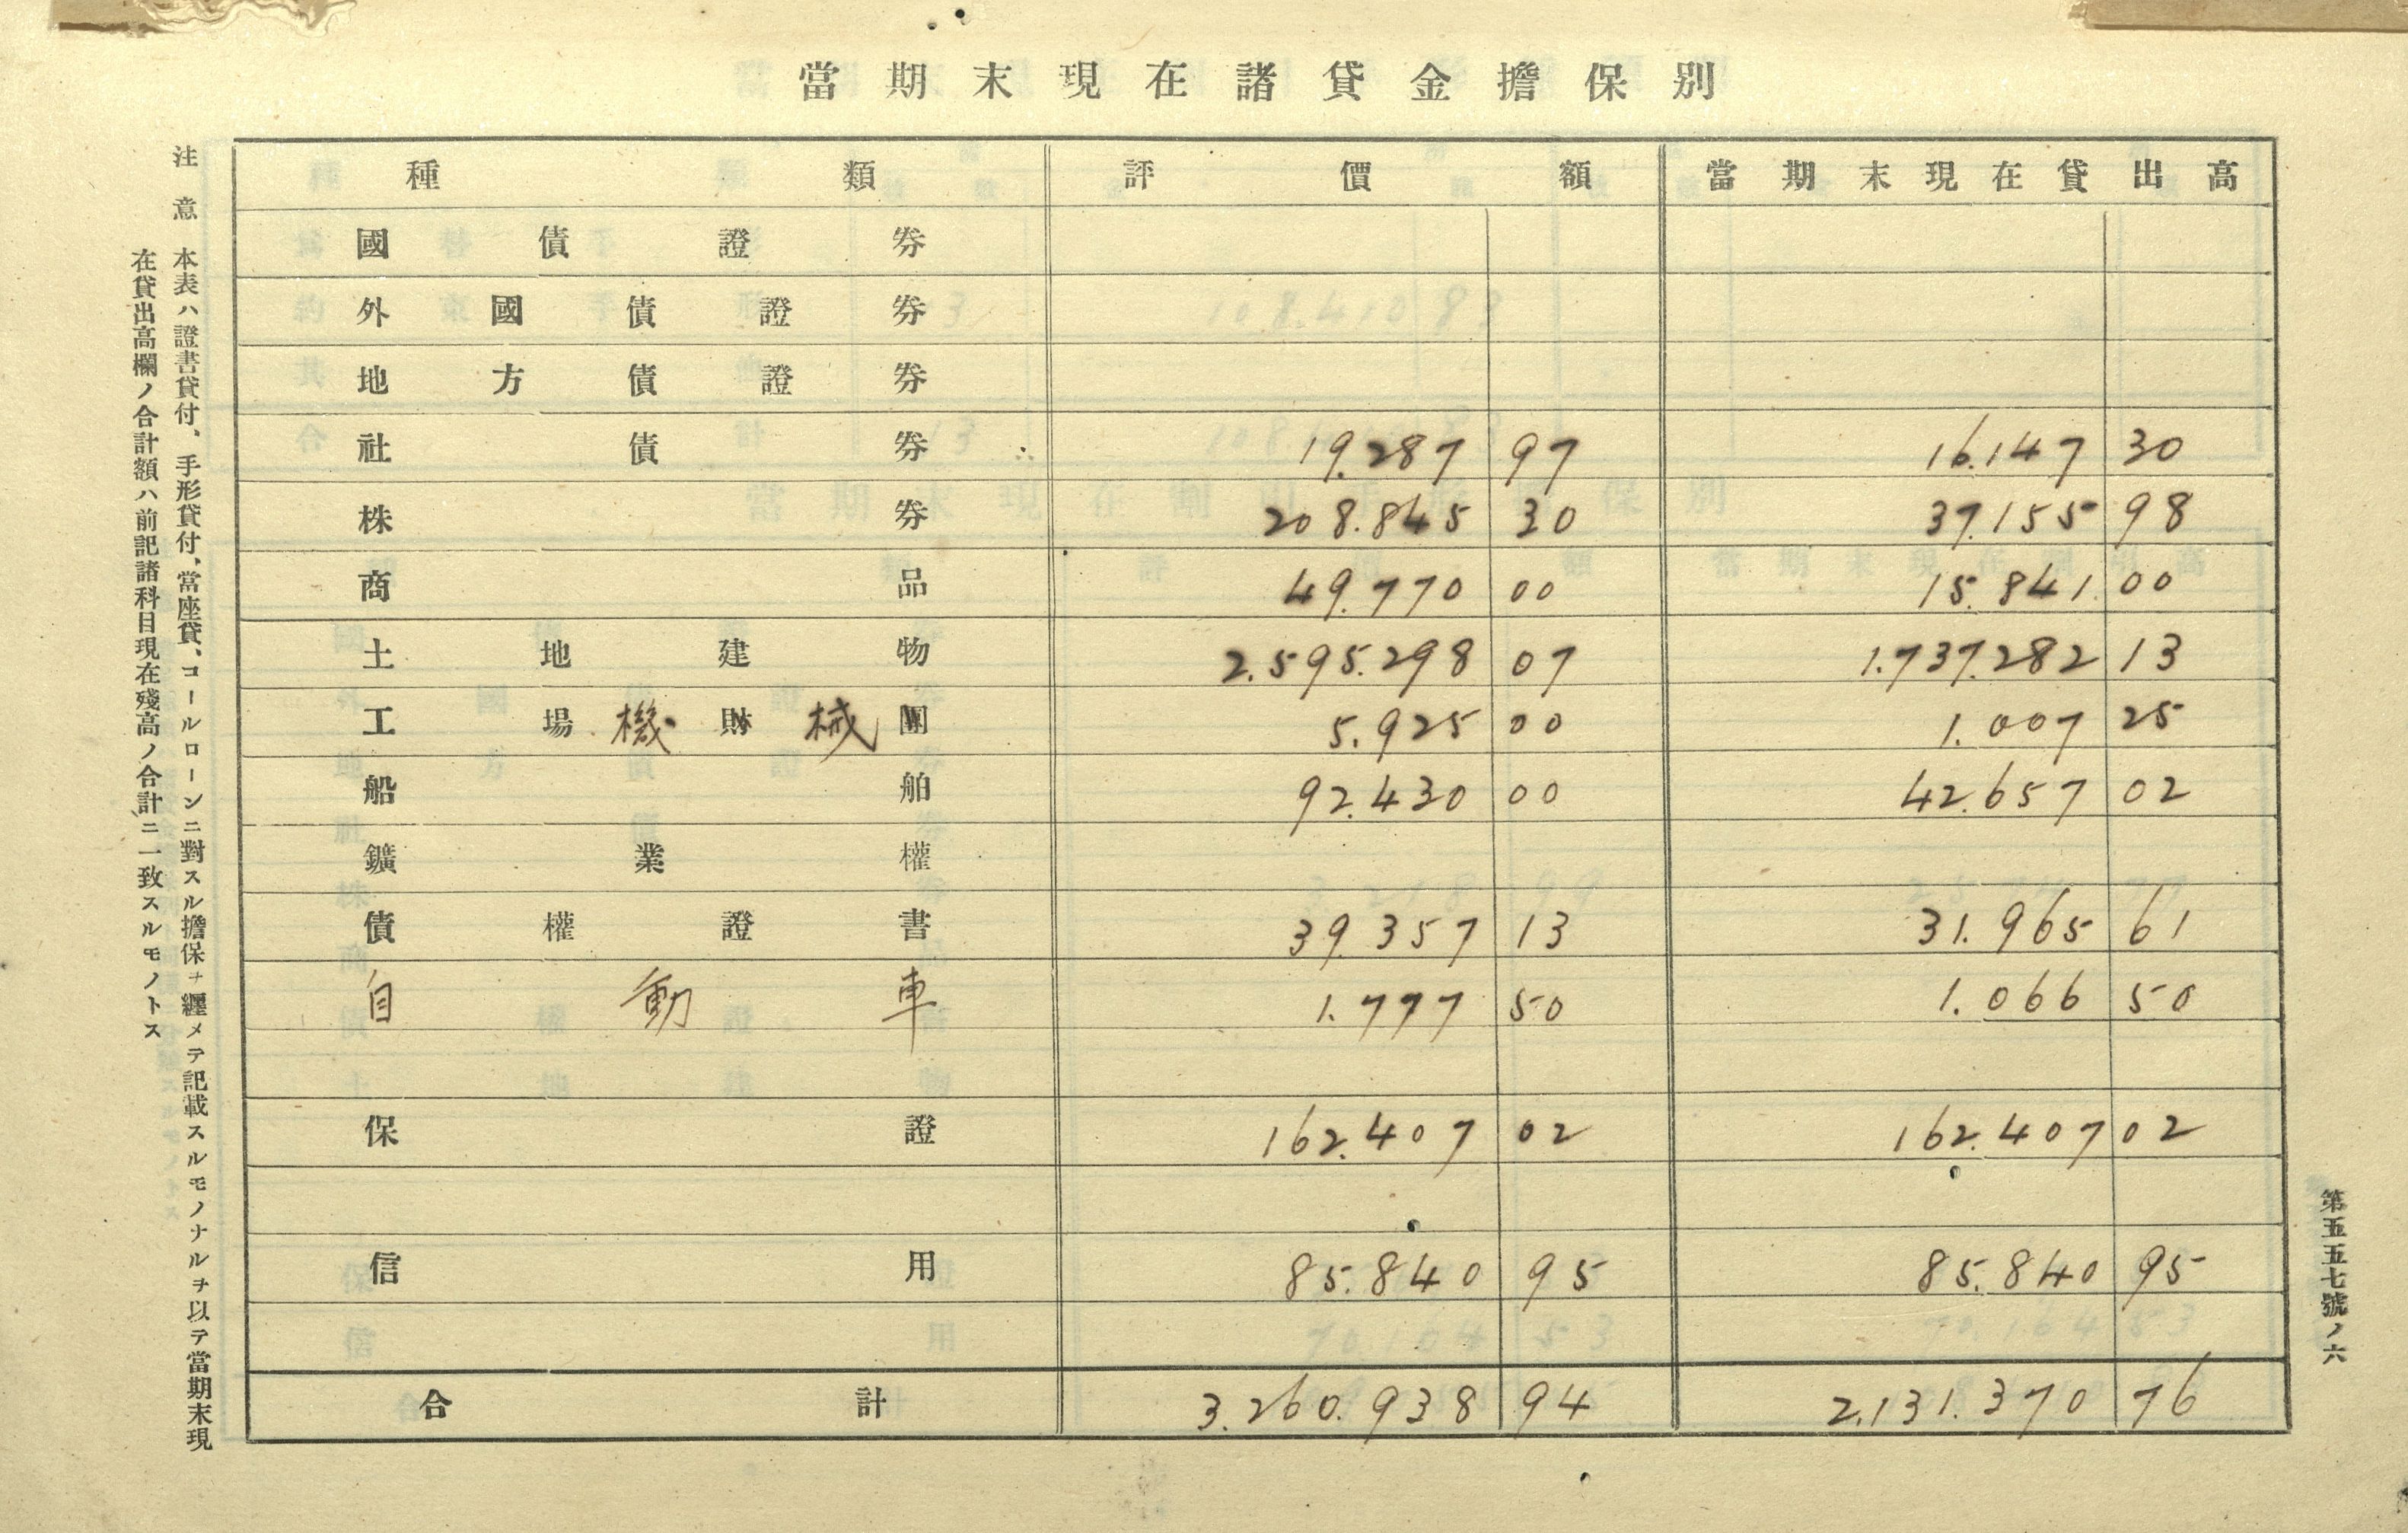 當期末現在諸貸金擔保別
種類 評價額 當期末現在貸出高
國債證券
外國債證券
地方債證券
社債券 19.287 97 16.147 30
株券 208.845 30 37.155 98
商品 49.770 00 15.841 00
土地建物 2.595.298 07 1.737.282 13
工場機財械團 5.925 00 1.007 25
船舶 92.430 00 42.657 02
鑛業權
債權證書 39.357 13 31.965 61
自動車 1.777 50 1.066 50
保證 162.407 02 162.407 02
信用 85.840 95 85.840 95
合計 3.260.938 94 2.131.370 76
注意 本表ハ證書貸付、手形貸付、當座貸、コールローンニ對スル擔保ヲ纒メテ記載スルモノナルヲ以テ當期末現
在貸出高欄ノ合計額ハ前記諸科目現在殘高ノ合計ニ一致スルモノトス
第五五七號ノ六